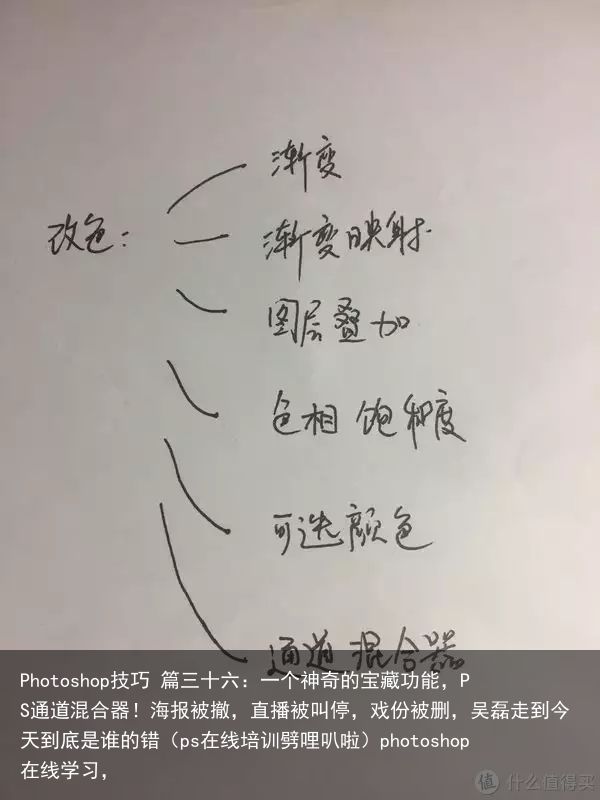 渐变
改色：
渐变映射
图层叠加
色相 饱和度
可选颜色
通道混合器
Photoshop技巧 篇三十六：一个神奇的宝藏功能，P
S通道混合器！海报被撤，直播被叫停，戏份被删，吴磊走到今
天到底是谁的错（ps在线培训劈哩叭啦）photoshop
在线学习，
值 什么值得买